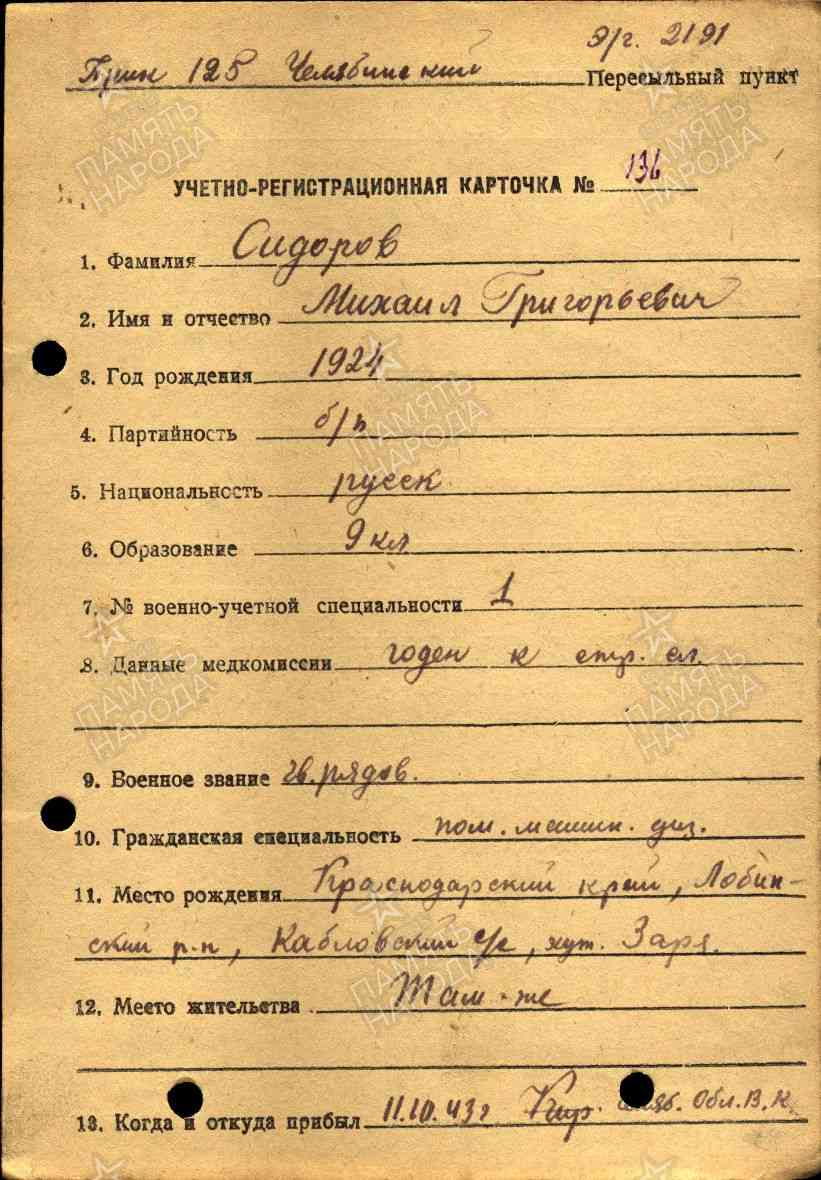 Э/г. 2191
125 Челябинский Пересыльный пункт
УЧЕТНО-РЕГИСТРАЦИОННАЯ КАРТОЧКА № 136
1. Фамилия Сидоров
2. Имя и отчество Михаил Григорьевич
3. Год рождения 1924
4. Партийность б/п
5. Национальность русск
6. Образование 9 кл
7. № военно-учетной специальности 1
8. Данные медкомиссии годен к стр. сл.
9. Военное звание гв. рядов.
10. Гражданская специальность пом. машин. диз.
11. Место рождения Краснодарский край, Лобин-
ский р-н, Кабловский с/с, хут. Заря.
12. Место жительства Там-же
13. Когда и откуда прибыл 11.10.43г Кир. Обл.В.К.
ПАМЯТЬ НАРОДА